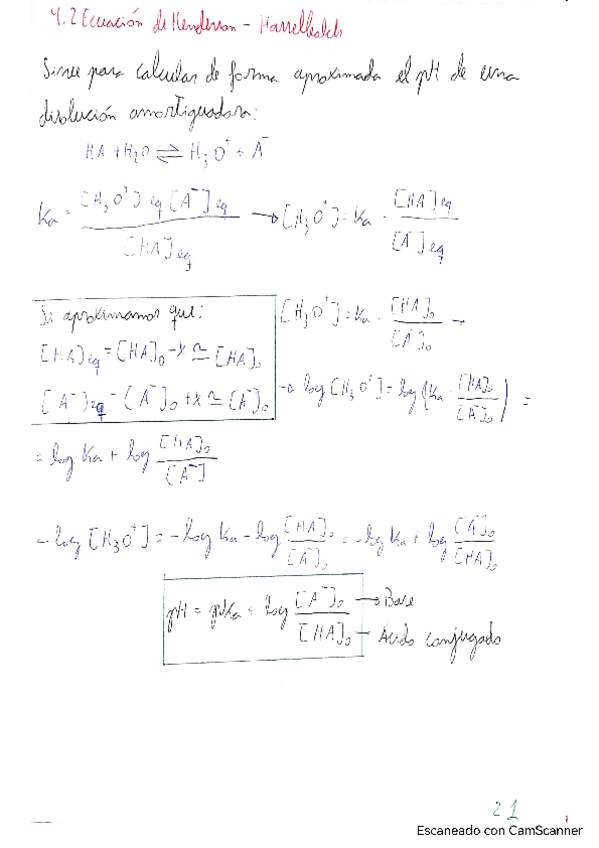 4.2 Ecuación de Henderson - Hasselbalch
Sirve para calcular de forma aproximada el pH de una
disolución amortiguadora:
HA + H₂O ⇌ H₃O⁺ + A⁻
Ka = [H₃O⁺]eq [A⁻]eq / [HA]eq → [H₃O⁺] = Ka · [HA]eq / [A⁻]eq
Si aproximamos que:
[HA]eq = [HA]₀ - x ≅ [HA]₀
[A⁻]eq = [A⁻]₀ + x ≅ [A⁻]₀
[H₃O⁺] = Ka · [HA]₀ / [A⁻]₀ →
→ log [H₃O⁺] = log (Ka · [HA]₀ / [A⁻]₀) =
= log Ka + log [HA]₀ / [A⁻]
- log [H₃O⁺] = - log Ka - log [HA]₀ / [A⁻]₀ = - log Ka + log [A⁻]₀ / [HA]₀
pH = pKa + log [A⁻]₀ / [HA]₀
→ Base
- Ácido conjugado
21
Escaneado con CamScanner